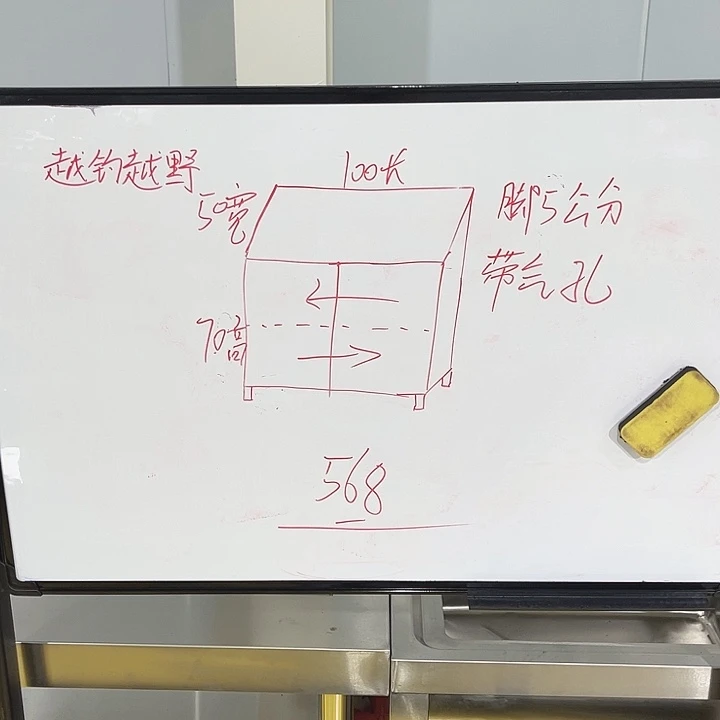 越钓越野
100长
50宽
脚5公分
带气孔
70高
568